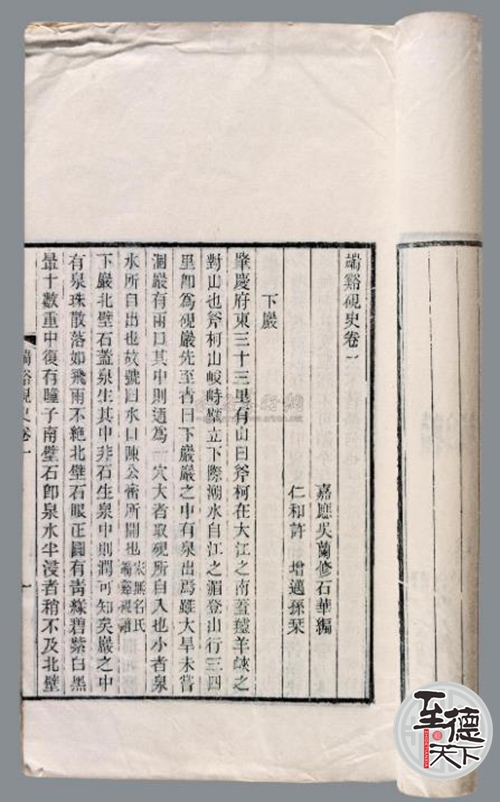 端谿硯史卷一
嘉應吳蘭修石華編
仁和許 增邁孫栞
下巖
肇慶府東三十三里有山曰斧柯在大江之南蓋羚羊峽之
對山也斧柯山峻峙壁立下際潮水自江之湄登山行三四
里卽爲硯巖先至者曰下巖巖之中有泉出焉雖大旱未嘗
涸巖有兩口其中則通爲一穴大者取硯所自入也小者泉
水所自出也故號曰水口陳公密所開也 宋無名氏端谿硯譜
下巖北壁石蓋泉生其中非石生泉中則潤可知矣巖之中
有泉珠散落如飛雨不絶北壁石眼正圓有靑綠碧紫白黑
暈十數重中復有瞳子南壁石卽泉水半浸者稍不及北壁
端谿硯史卷一
一
至德天下